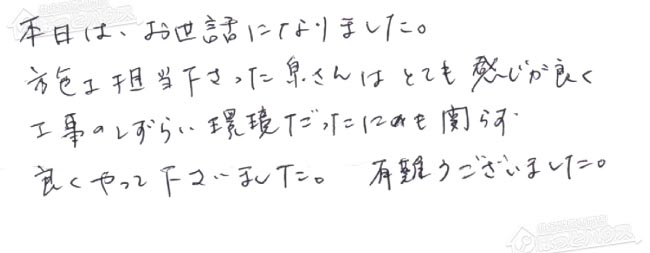 本日は、お世話になりました。
施工担当下さった泉さんはとても感じが良く
工事のしずらい環境だったにも関らず
良くやって下さいました。 有難うございました。